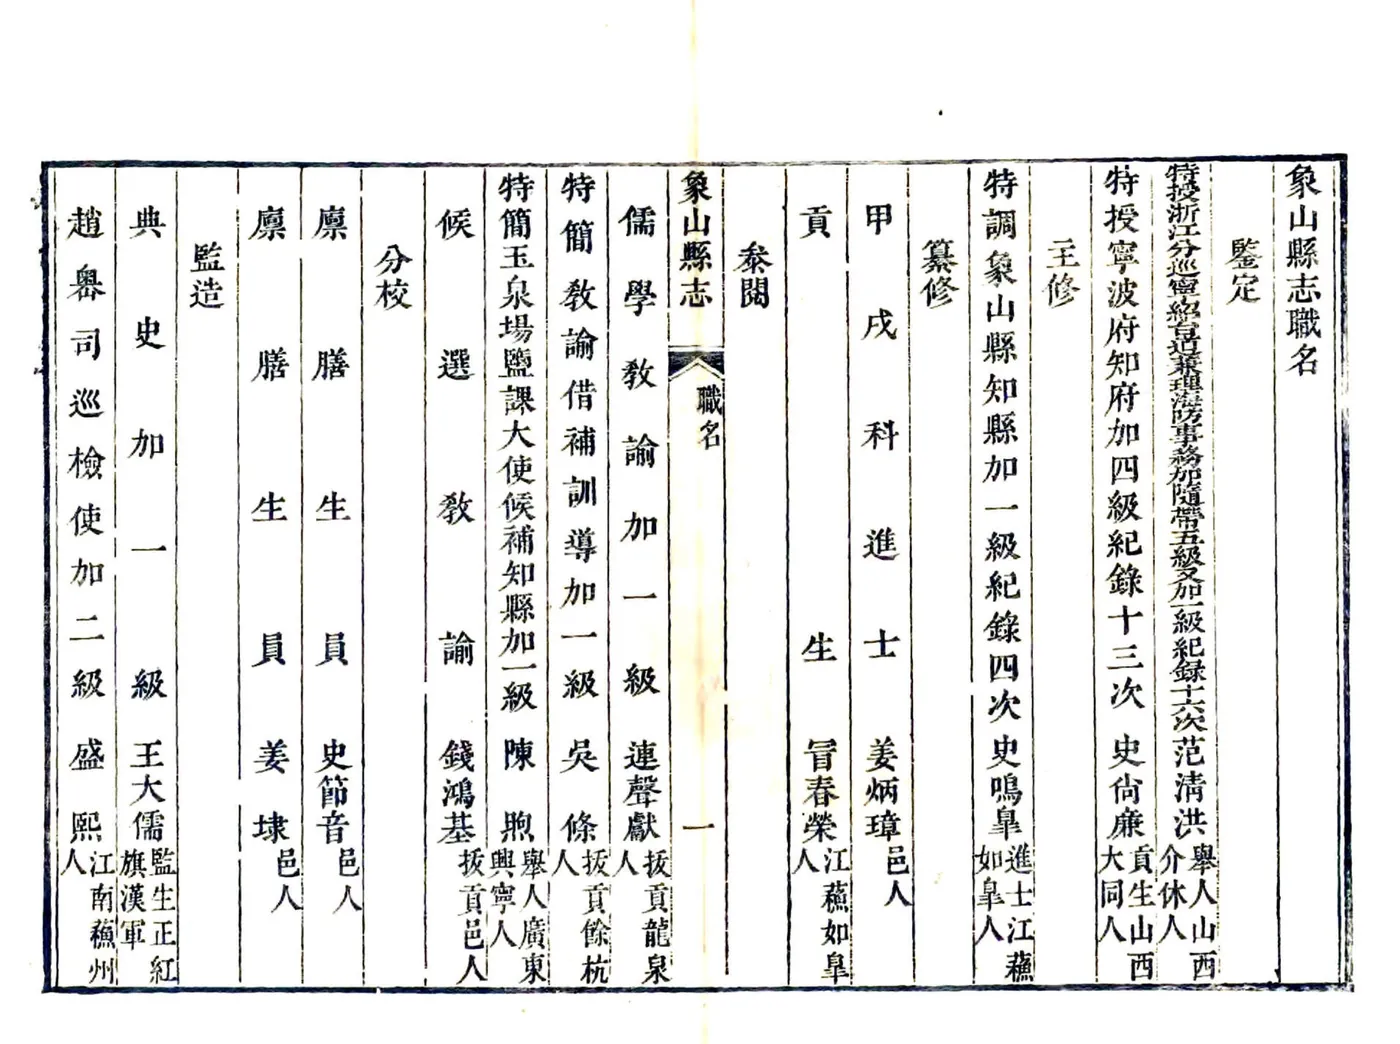 象山縣志職名
鑒定
特授浙江分巡寧紹台道兼理海防事務加隨帶五級又加一級紀錄十六次范清洪舉人山西介休人
特授寧波府知府加四級紀錄十三次史尙廉貢生山西大同人
主修
特調象山縣知縣加一級紀錄四次史鳴臯進士江蘇如臯人
纂修
甲戌科進士姜炳璋邑人
貢生冒春榮江蘇如臯人
叅閱
象山縣志 職名 一
儒學敎諭加一級連聲獻拔貢龍泉人
特簡敎諭借補訓導加一級吳條拔貢餘杭人
特簡玉泉場鹽課大使候補知縣加一級陳煦舉人廣東興寧人
候選敎諭錢鴻基拔貢邑人
分校
廩膳生員史節音邑人
廩膳生員姜埭邑人
監造
典史加一級王大儒監生正紅旗漢軍
趙嶴司巡檢使加二級盛熙江南蘇州人